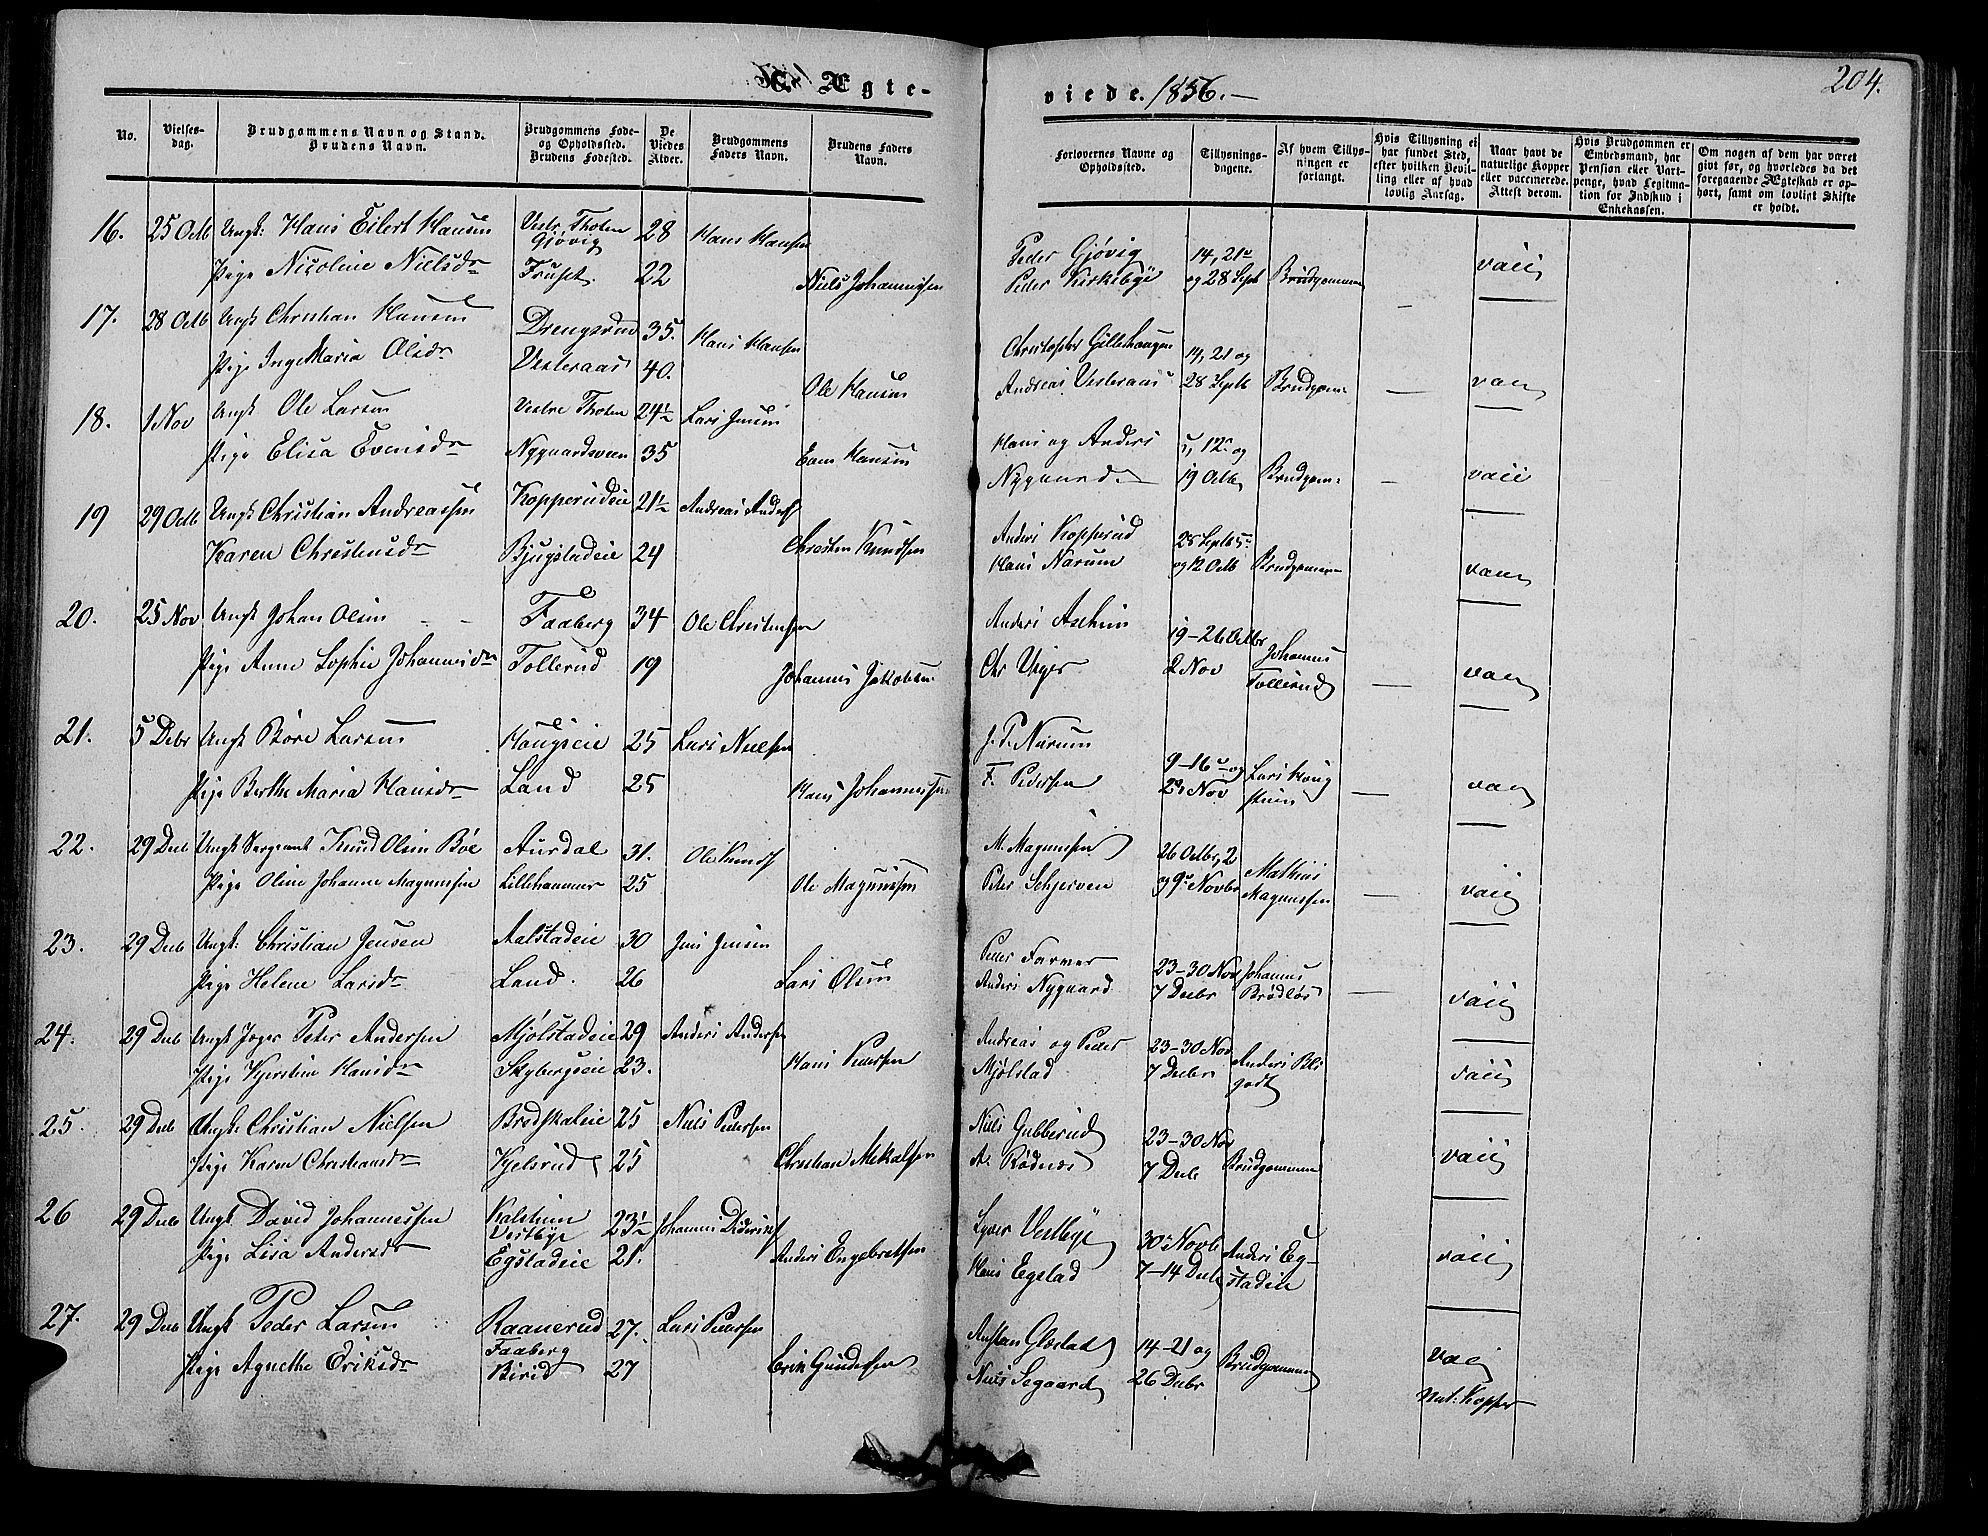 C. Ægte-
viede. 1856.
204.
No.
Vielses-
dag.
Brudgommens Navn og Stand.
Brudens Navn.
Brudgommens Føde-
og Opholdssted.
Brudens Fødested.
De
Viedes
Alder.
Brudgommens
Faders Navn.
Brudens Faders
Navn.
Forlovernes Navne og
Opholdssted.
Tillysnings-
dagene.
Af hvem Tillys-
ningen er
forlangt.
Hvis Tillysning ei
har fundet Sted,
efter hvilken Bevil-
ling eller af hvad
lovlig Aarsag.
Naar havt de
naturlige Kopper
eller vaccinerede.
Attest derom.
Hvis Brudgommen er
Embedsmand, har
Pension eller Vart-
penge, hvad Legitima-
tion for Indskud i
Enkekassen.
Om nogen af dem har været
givt før, og hvorledes da det
foregaaende Ægteskab er op-
hørt, samt om lovligt Skifte
er holdt.
16. 25 Octb Ungk: Hans Eilert Hansen Vestr. Thoten Gjøvig 28 Hans Hansen
Pige Nicoline Nielsdr Fruset 22 Niels Johannissen
Peder Gjøvig 14, 21 og 28 Septb Brudgommen vacc
Peder Kirkebye
17. 28 Octb Ungk Christian Hansen Drengsrud 35. Hans Hansen
Pige Inge Maria Olsdr Vesteraas 40. Ole Hansen
Christopher Gillehaugen 14, 21 og
Andreas Vesteraas 28 Septb Brudgom: vacc
18. 1 Nov Ungk Ole Larsen Vestre Thoten 24½ Lars Jensen
Pige Elisa Evensdr Nygaardsveen 35 Even Hansen
Hans og Anders 5, 12 og
Nygaard 19 Octb Brudgom: vacc
19 29 Octb Ungk Christian Andreassen Kopperudeie 21½ Andreas Anders
Karen Christensdr Bjugstadeie 24 Christen Knudsen
Anders Kopperud 28 Septb 5
Hans Narum og 12 Octb Brudgommen vacc
20. 25 Nov Ungk Johan Olsen Faaberg 34 Ole Christensen
Pige Anne Sophie Johannisdr Tollerud 19 Johannis Jakobsen
Anders Ascheim 19-26 Octbr Johannes
Chr Unger 2 Nov Tollerud vacc
21. 5 Debr Ungk Børe Larsen Haugseie 25 Lars Nielsen
Pige Berthe Maria Hansdr Land 25 Hans Johannissen
J. P. Narum 9-16 og Lars Haug
F. Pedersen 23 Nov vacc
22. 29 Deb Ungk Sergeant Knud Olsen Bøe Aurdal 31. Ole Knuds
Pige Oline Johanne Magnussen Lillehammer 25 Ole Magnussen
M. Magnussen 26 Octbr, 2 Mathias
Peder Schjerven og 9 Novbr Magnussen vacc
23. 29 Deb Ungk: Christian Jensen Aalstadeie 30 Jens Jensen
Pige Helene Larsdr Land. 26 Lars Olsen
Peder Farver 23-30 Nov Johannes
Anders Nygaard 7 Decbr Brødløs vacc
24. 29 Deb Ungk Jæger Peter Andersen Mjølstadeie 29 Anders Andersen
Pige Kjerstine Hansdr Skybergseie 23. Hans Pedersen
Andreas og Peder 23-30 Nov Anders Bli
Mjølstad 7 Decbr godt vacc
25. 29 Deb Ungk: Christian Nielsen Brødskaleie 25 Niels Pedersen
Pige Karen Christiansdr Kjelsrud 25 Christian Mikalsen
Niels Gubberud 23-30 Nov
A. Rødnes 7 Decb Brudgommen vacc
26 29 Deb Ungk. David Johannessen Kalsteen Vestbye 23½ Johannes Diderichs
Pige Lisa Andersdr Egstadeie 21. Anders Engebretsen
Syver Vestbye 30 Novb Anders Eg-
Hans Egstad 7-14 Decb stadeie vacc
27. 29 Deb Ungk Peder Larsen Raanerud Faaberg 27. Lars Pedersen
Pige Agnethe Eriksdr Birid 27 Erik Gundersen
Glæstad 14-21 og
Niels Segaard 26 Decbr Brudgommen vacc
Nat. Kopper